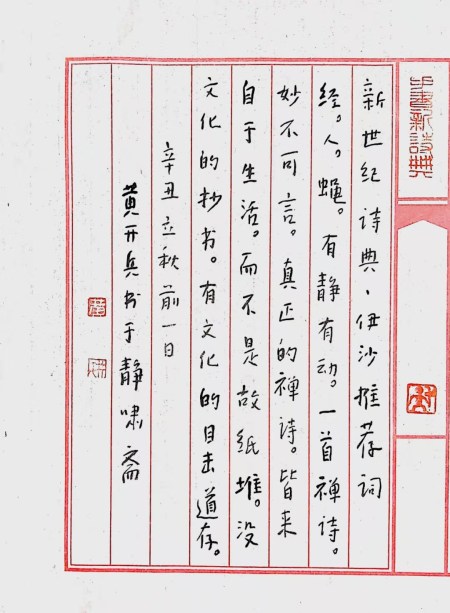 新世纪诗典、伊沙推荐词
经。人。蝇。有静有动。一首禅诗。
妙不可言。真正的禅诗。皆来
自于生活。而不是故纸堆。没
文化的抄书。有文化的目击道存。
辛丑立秋前一日
黄开兵书于静啸斋